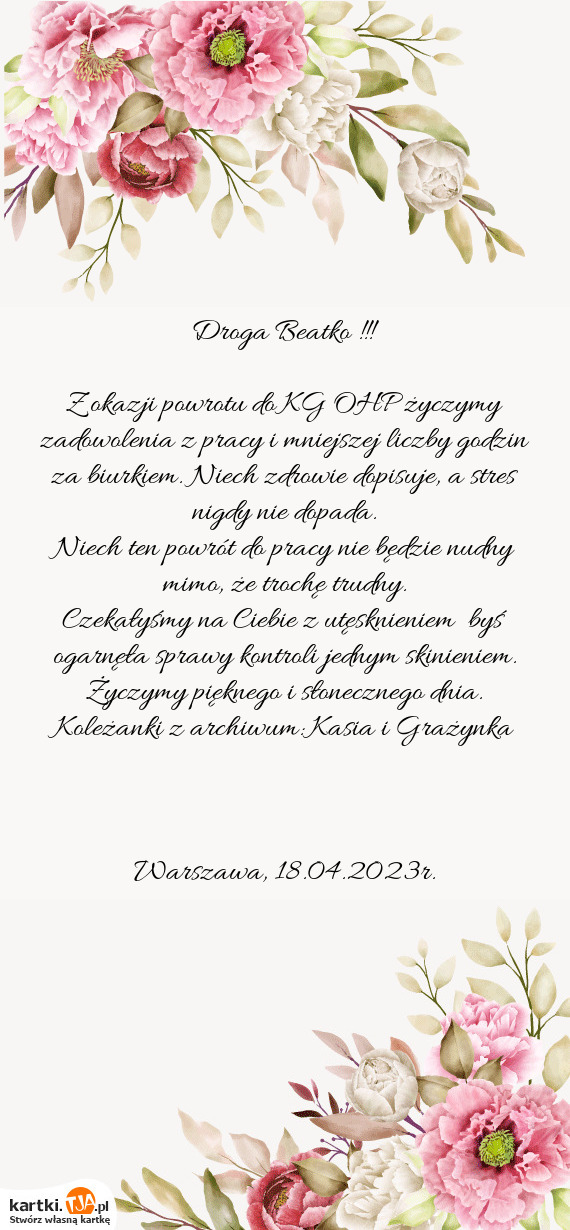 Droga Beatko !!!
Z okazji powrotu do KG OHP życzymy
zadowolenia z pracy i mniejszej liczby godzin
za biurkiem. Niech zdrowie dopisuje, a stres
nigdy nie dopada.
Niech ten powrót do pracy nie będzie nudny
mimo, że trochę trudny.
Czekałyśmy na Ciebie z utęsknieniem byś
ogarnęła sprawy kontroli jednym skinieniem.
Życzymy pięknego i słonecznego dnia.
Koleżanki z archiwum:Kasia i Grażynka
Warszawa, 18.04.2023r.
kartki.TJA.pl
Stwórz własną kartkę